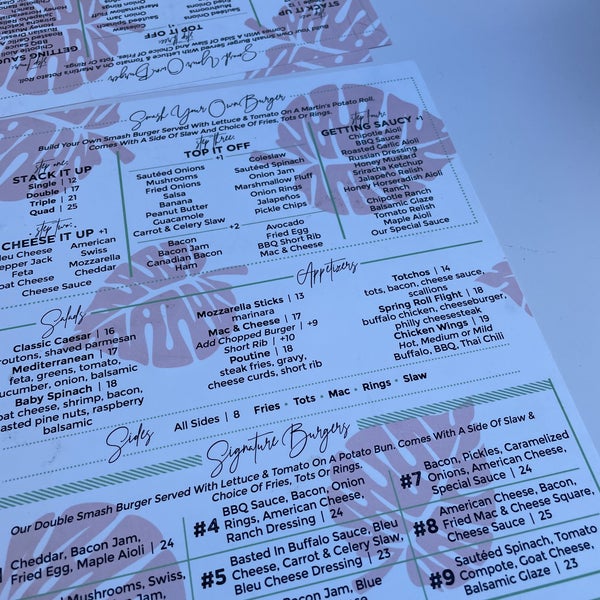 STACK IT UP
TOP IT OFF
GETTING SAUCY
Smash Your Own Burger
Smash Your Own Burger
Build Your Own Smash Burger Served With Lettuce & Tomato On A Martin's Potato Roll.
Comes With A Side Of Slaw And Choice Of Fries, Tots Or Rings.
step one:
STACK IT UP
Single | 12
Double | 17
Triple | 21
Quad | 25
step two:
CHEESE IT UP +1
Bleu Cheese
Pepper Jack
Feta
Goat Cheese
American
Swiss
Mozzarella
Cheddar
Cheese Sauce
step three:
TOP IT OFF
+1
Sautéed Onions
Mushrooms
Fried Onions
Salsa
Banana
Peanut Butter
Guacamole
Carrot & Celery Slaw
Coleslaw
Sautéed Spinach
Onion Jam
Marshmallow Fluff
Onion Rings
Jalapeños
Pickle Chips
+2
Bacon
Bacon Jam
Canadian Bacon
Ham
Avocado
Fried Egg
BBQ Short Rib
Mac & Cheese
step four:
GETTING SAUCY +1
Chipotle Aioli
BBQ Sauce
Roasted Garlic Aioli
Russian Dressing
Honey Mustard
Sriracha Ketchup
Jalapeño Relish
Honey Horseradish Aioli
Ranch
Chipotle Ranch
Balsamic Glaze
Tomato Relish
Maple Aioli
Our Special Sauce
Salads
Classic Caesar | 16
croutons, shaved parmesan
Mediterranean | 17
feta, greens, tomato,
cucumber, onion, balsamic
Baby Spinach | 18
goat cheese, shrimp, bacon,
roasted pine nuts, raspberry
balsamic
Appetizers
Mozzarella Sticks | 13
marinara
Mac & Cheese | 17
Add Chopped Burger | +9
Short Rib | +10
Poutine | 18
steak fries, gravy,
cheese curds, short rib
Totchos | 14
tots, bacon, cheese sauce,
scallions
Spring Roll Flight | 18
buffalo chicken, cheeseburger,
philly cheesesteak
Chicken Wings | 19
Hot, Medium or Mild
Buffalo, BBQ, Thai Chili
Sides
All Sides | 8 Fries • Tots • Mac • Rings • Slaw
Signature Burgers
Our Double Smash Burger Served With Lettuce & Tomato On A Potato Bun. Comes With A Side Of Slaw &
Choice Of Fries, Tots Or Rings.
Cheddar, Bacon Jam,
Fried Egg, Maple Aioli | 24
Mushrooms, Swiss,
#4 BBQ Sauce, Bacon, Onion
Rings, American Cheese,
Ranch Dressing | 24
#5 Basted In Buffalo Sauce, Bleu
Cheese, Carrot & Celery Slaw,
Bleu Cheese Dressing | 23
Bacon Jam, Blue
#7 Bacon, Pickles, Caramelized
Onions, American Cheese,
Special Sauce | 24
#8 American Cheese, Bacon,
Fried Mac & Cheese Square,
Cheese Sauce | 25
#9 Sautéed Spinach, Tomato
Compote, Goat Cheese,
Balsamic Glaze | 23